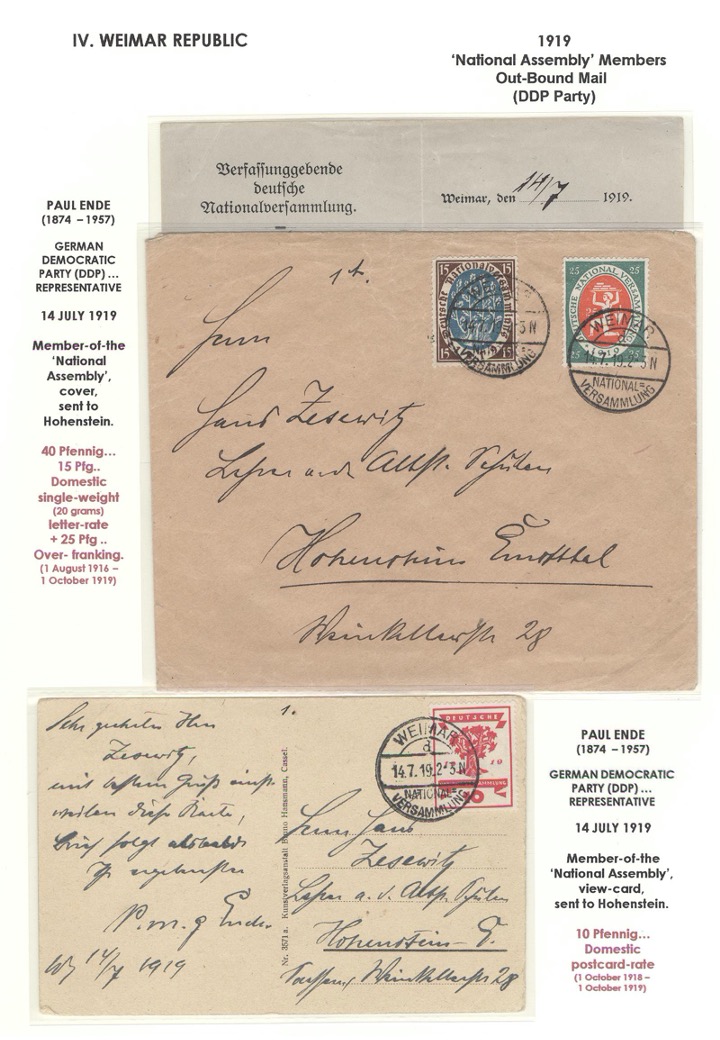 IV. WEIMAR REPUBLIC
1919
‘National Assembly’ Members
Out-Bound Mail
(DDP Party)
PAUL ENDE
(1874 – 1957)
GERMAN
DEMOCRATIC
PARTY (DDP) ...
REPRESENTATIVE
14 JULY 1919
Member-of-the
‘National
Assembly’,
cover,
sent to
Hohenstein.
40 Pfennig...
15 Pfg..
Domestic
single-weight
(20 grams)
letter-rate
+ 25 Pfg ..
Over- franking.
(1 August 1916 –
1 October 1919)
Verfassunggebende
deutsche
Nationalversammlung.
Weimar, den 14/7 1919.
15 15
15 15
25 25
WEIMAR
14.7.19.2-3N
NATIONAL=
VERSAMMLUNG
Herrn
Hans Zesewitz
Lehrer a. d. Altst. Schulen
Hohenstein Ernstthal
Weinkellerstr 28
Sehr geehrter Herr
Zesewitz,
mit bestem Gruß
diese Karte,
Brief folgt
P. m. g Ende
14/7 1919
1.
Nr. 3571a. Kunstverlagsanstalt Bruno Hansmann, Cassel.
DEUTSCHE
WEIMAR
a
14.7.19.2-3N
NATIONAL=
VERSAMMLUNG
Herrn Hans
Zesewitz
Lehrer a. d. Altst. Schulen
Hohenstein-E.
Sachsen Weinkellerstr 28
PAUL ENDE
(1874 – 1957)
GERMAN DEMOCRATIC
PARTY (DDP) ...
REPRESENTATIVE
14 JULY 1919
Member-of-the
‘National Assembly’,
view-card,
sent to Hohenstein.
10 Pfennig...
Domestic
postcard-rate
(1 October 1918 –
1 October 1919)